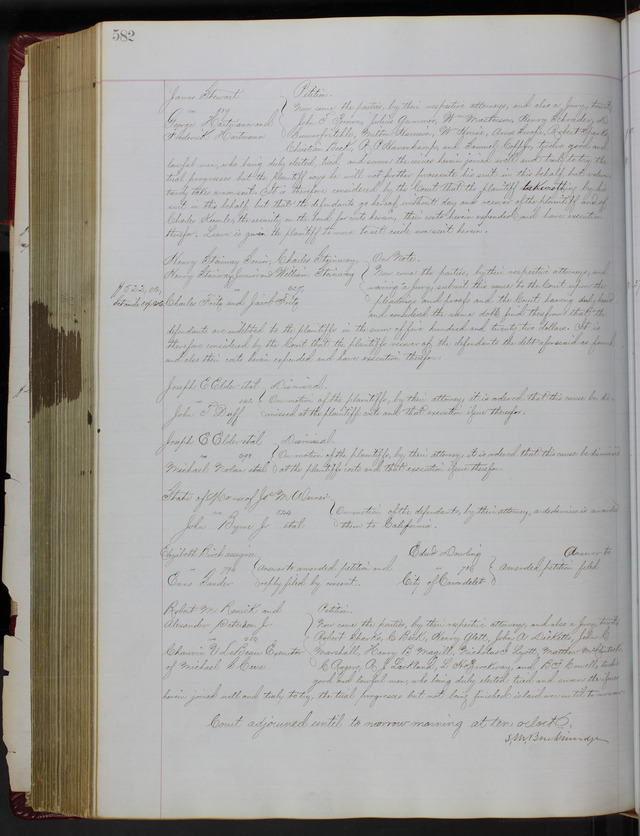 582
James Stewart Petition.
vs Now come the parties, by their respective attorneys, and also a jury, twenty
George Hartman and John F.
Frederick Hartman
Christian Beck, and Samuel twelve good and
lawful men, who being duly elected, tried, and sworn the issue herein joined well and truly to try, the
trial progresses but the Plaintiff says he will not further prosecute his suit in this behalf but
take a nonsuit. It is therefore considered by the Court that the plaintiff take nothing by his
suit in this behalf but that the defendants go hereof without day and recover of the plaintiff and of
Charles the security on the bond for costs herein, their costs herein expended and have execution
therefor. Leave is given the plaintiff to move to set aside nonsuit herein.
Henry Steinway Senior, Charles Steinway, On Note.
Henry Steinway Junior and William Steinway Now come the parties, by their respective attorneys, and
vs waiving a jury, submit this cause to the Court upon the
Charles Fritz and Jacob Fritz pleadings and proofs and the Court having duly heard
and considered the same doth find therefrom that the
defendants are indebted to the plaintiffs in the sum of five hundred and twenty two dollars. It is
therefore considered by the Court that the plaintiffs recover of the defendants the debt aforesaid as found
and also their costs herein expended and have execution therefor.
Joseph E Elder et al Dismissal.
vs On motion of the plaintiffs, by their attorney it is ordered that this cause be dis-
John T Duff missed at the plaintiffs costs and that execution issue therefor.
Joseph E Elder et al Dismissal
vs On motion of the plaintiffs, by their attorney, it is ordered that this cause be dismissed
Michael Nolan et al at the plaintiffs costs and that execution issue therefor.
State of Mo use of Jos M
vs On motion of the defendants, by their attorney, a dedimus is awarded
John Byrne Jr et al them to California.
Elizabeth Edwd Dowling Answer to
vs answer to amended petition and vs amended petition filed
reply filed by consent. City of Carondelet
Robert M. Renick and Petition.
Alexander Peterson Jr Now come the parties, by their respective attorneys, and also a jury, twenty
vs Robert Sparks, C Beck, Henry Plett, John A Ricketts, John C
Chauvin V LeBeau Executor Marshall, Henry B Magill, Lyett, Matthew
of Michael S Cerre C Rogers, A J Lackland, L and twelve
good and lawful men, who being duly elected, tried and sworn the issue
herein joined well and truly to try, the trial progresses but not being finished is laid over until tomorrow
Court adjourned until to morrow morning at ten oclock.
S. M. Breckinridge